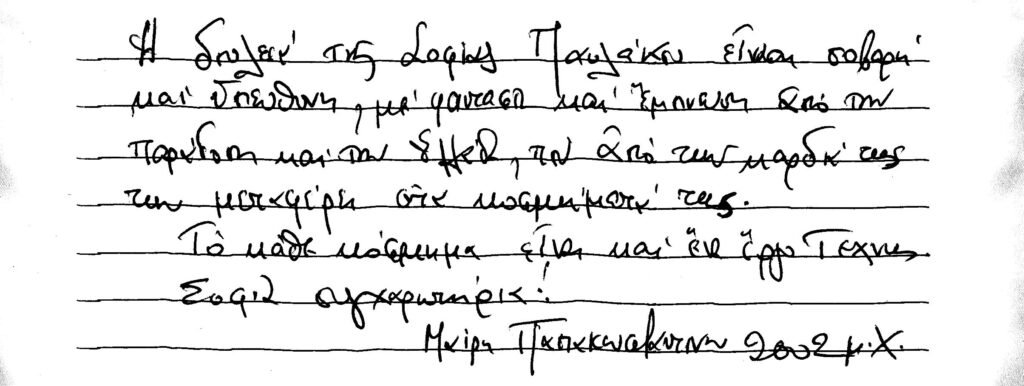 Η δουλειά της Σοφίας Παυλάκου είναι σοβαρή
καί ὑπεύθυνη, μέ φαντασία καί ἔμπνευση ἀπό την
παράδοση και την, που ἀπό την καρδιά της
την μεταφέρη στα κοσμήματά της.
Τό κάθε κόσμημα εἶναι καί ἕνα ἔργο Τέχνης
Σοφία συγχαρητήρια!
Μαίρη Παπακωνσταντίνου 2002 μ.Χ.